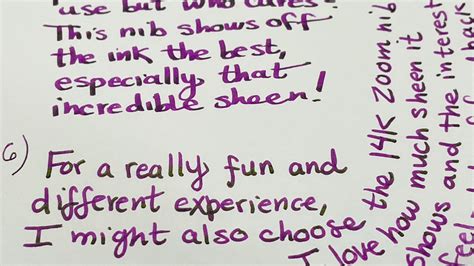 use but who cares!
This nib shows off
the ink the best,
especially that
incredible sheen!
6) For a really fun and
different experience,
I might also choose
the 14K zoom nib
I love how much sheen it
shows and the interest
feel